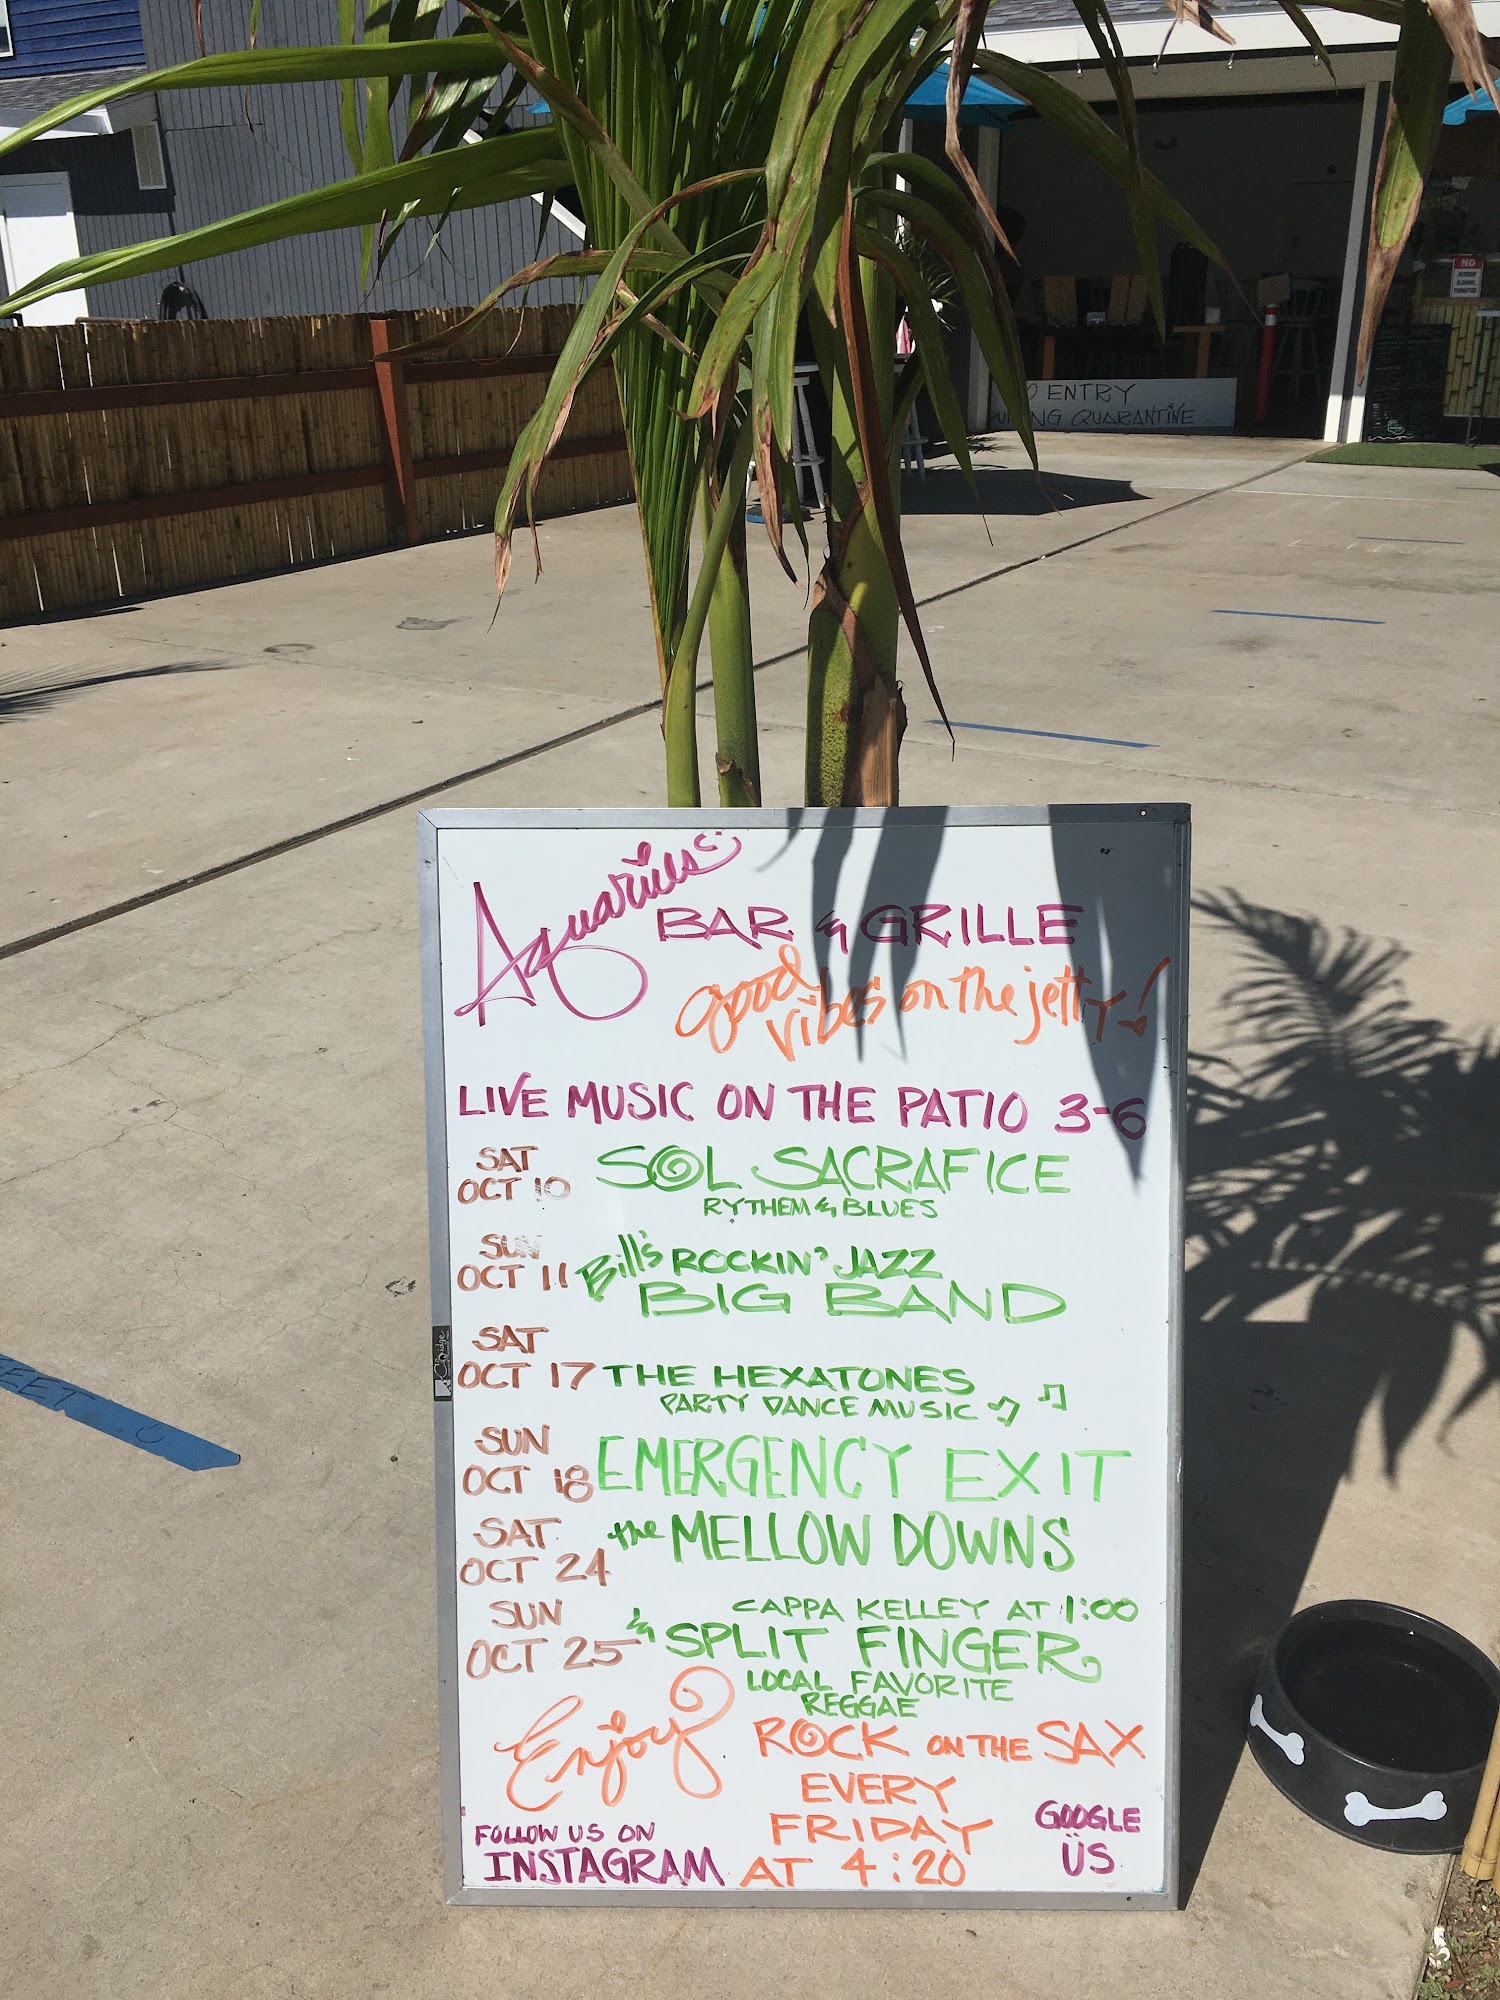 NO
OUTSIDE
ALCOHOL
PERMITTED
O ENTRY
DURING QUARANTINE
Aquarius
BAR & GRILLE
good
vibes on the jetty!
LIVE MUSIC ON THE PATIO 3-6
SAT
OCT 10
SOL SACRAFICE
RYTHEM & BLUES
SUN
OCT 11
Bill's ROCKIN' JAZZ
BIG BAND
SAT
OCT 17
THE HEXATONES
PARTY DANCE MUSIC
SUN
OCT 18
EMERGENCY EXIT
SAT
OCT 24
the MELLOW DOWNS
SUN
OCT 25
CAPPA KELLEY AT 1:00
& SPLIT FINGER
LOCAL FAVORITE
REGGAE
Enjoy
ROCK ON THE SAX
EVERY
FRIDAY
AT 4:20
FOLLOW US ON
INSTAGRAM
GOOGLE
ÜS